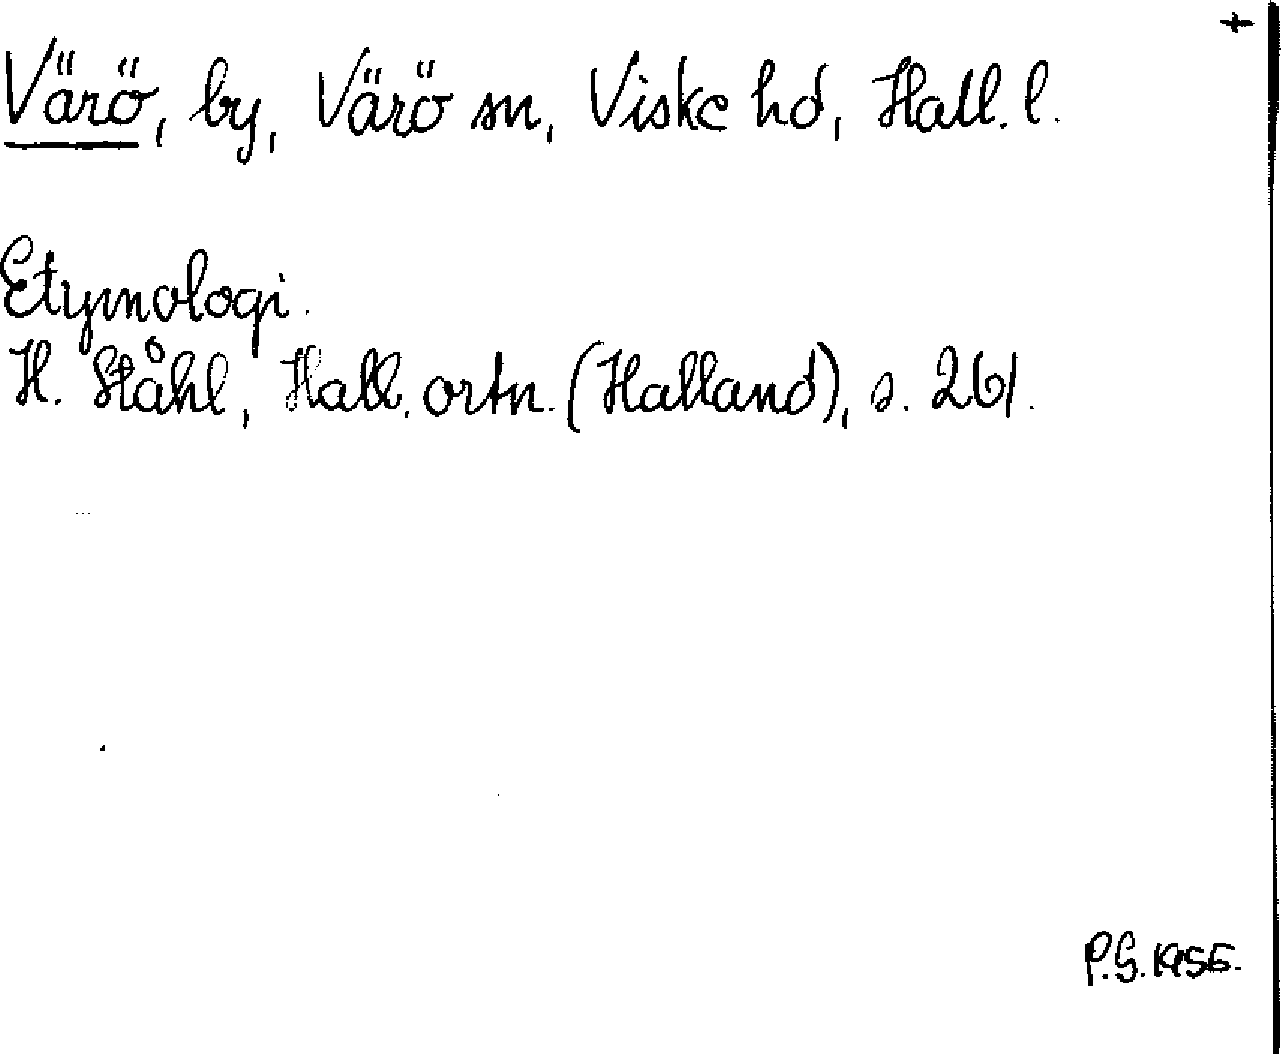 +
Värö, by, Värö sn, Viske hd, Hall. l.
Etymologi.
H. Ståhl, Hall. ortn. (Halland), s. 261.
P.G. 1955.